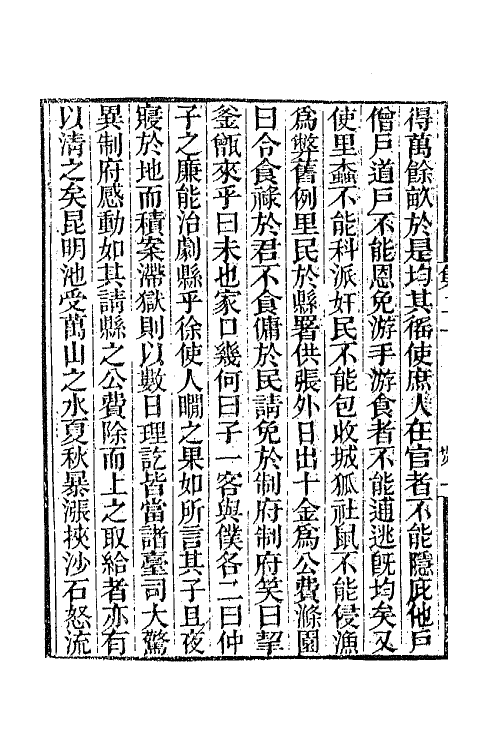 得萬餘畝於是均其徭使庶人在官者不能隱庇他戶
僧戶道戶不能恩免游手游食者不能逋逃旣均矣又
使里蠧不能科派奸民不能包收城狐社鼠不能侵漁
爲弊舊例里民於縣署供張外日出十金爲公費滌園
曰令食祿於君不食傭於民請免於制府制府笑曰挈
釜甑來乎曰未也家口幾何曰子一客與僕各二曰仲
子之廉能治劇縣乎徐使人瞷之果如所言其子且夜
寢於地而積案滯獄則以數日理訖皆當諸臺司大驚
異制府感動如其請縣之公費除而上之取給者亦有
以淸之矣昆明池受萬山之水夏秋暴漲挾沙石怒流